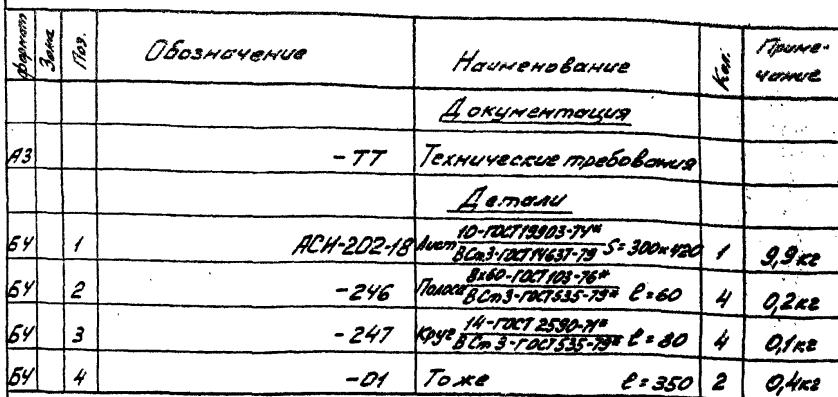 Формат Зона Поз. Обозначение Наименование Кол. Примечание
Документация
А3 -ТТ Технические требования
Детали
БЧ 1 АСИ-202-18 Лист 10-ГОСТ 19903-74* / ВСт3-ГОСТ 14637-79 S=300×420 1 9,9кг
БЧ 2 -246 Полоса 8х60-ГОСТ 103-76* / ВСт3-ГОСТ 535-79* ℓ=60 4 0,2кг
БЧ 3 -247 Круг 14-ГОСТ 2590-71* / ВСт3-ГОСТ 535-79* ℓ=80 4 0,1кг
БЧ 4 -01 То же ℓ=350 2 0,4кг